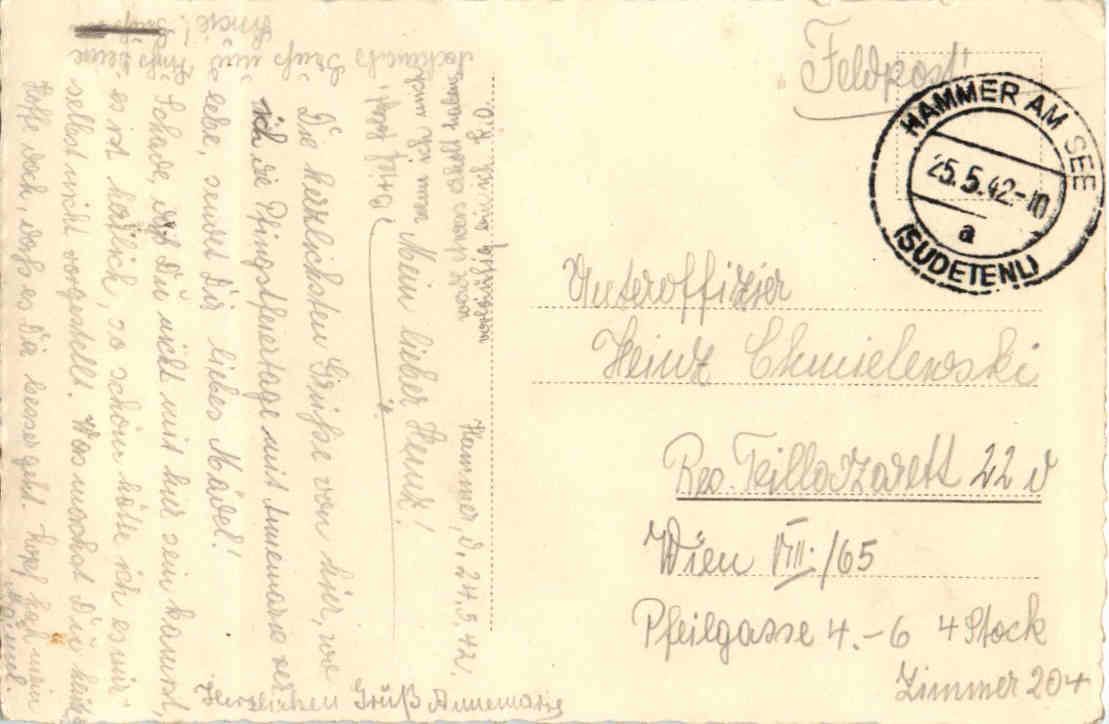 Feldpost
HAMMER AM SEE
25.5.42-10
a
(SUDETENL)
Unteroffizier
Heinz Chmielewski
Res. Teillazarett 22 d
Wien VIII./65
Pfeilgasse 4.-6 4 Stock
Zimmer 204
Hammer, d. 24.5.42.
Mein lieber Heinz!
Die herzlichsten Grüße von hier, wo
ich die Pfingstfeiertage mit Annemarie ver-
lebe, sendet Dir liebes Mädel!
Schade, daß Du nicht mit hier sein kannst,
es ist herrlich, so schön hätte ich es mir
selbst nicht vorgestellt. Was machst Du
Hoffe doch, daß es Dir besser geht. Kopf hoch mein
Nochmals Gruß und
Herzlichen Gruß Annemarie